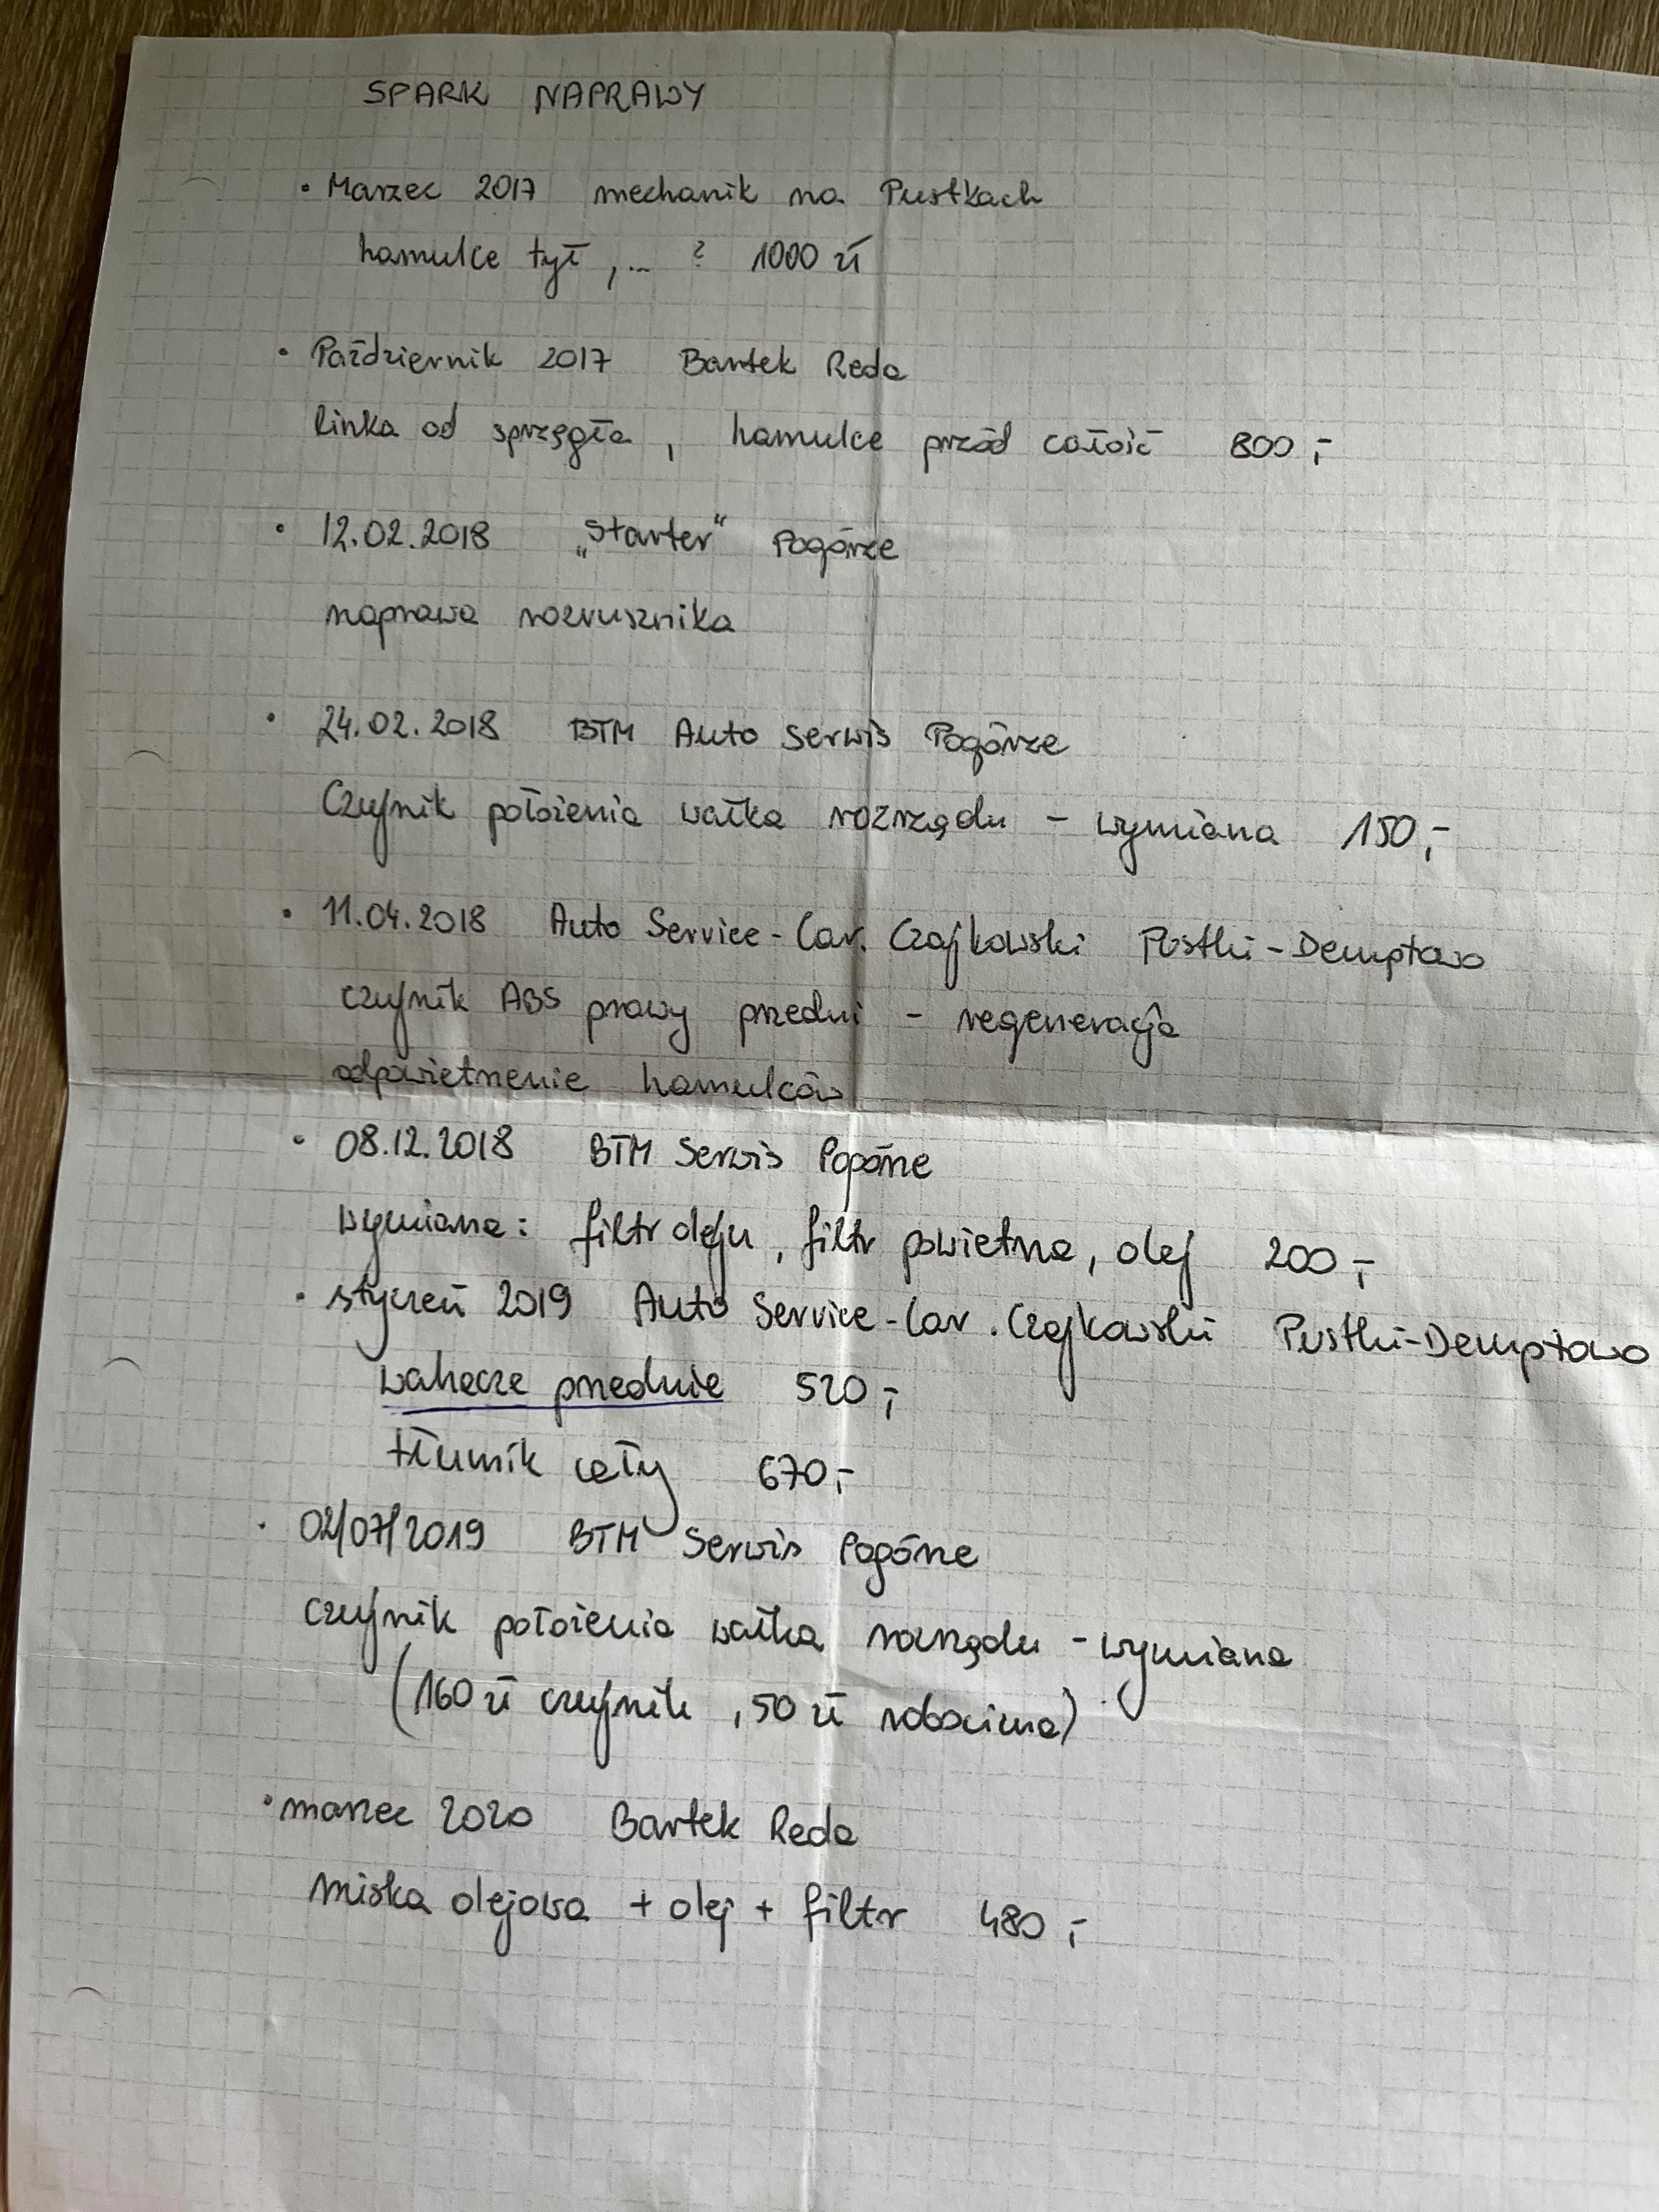 SPARK NAPRAWY
• Marzec 2017 mechanik na Pustkach
hamulce tył, ... ? 1000 zł
• Październik 2017 Bartek Reda
linka od sprzęgła, hamulce przód całość 800,-
• 12.02.2018 „Starter" Pogórze
naprawa rozrusznika
• 24.02.2018 BTM Auto Serwis Pogórze
Czujnik położenia wałka rozrządu - wymiana 150,-
• 11.04.2018 Auto Service-Car. Czajkowski Pustki-Demptowo
czujnik ABS prawy przedni - regeneracja
odpowietrzenie hamulców
• 08.12.2018 BTM Serwis Pogórze
wymiana: filtr oleju, filtr powietrza, olej 200,-
• styczeń 2019 Auto Service-Car. Czajkowski Pustki-Demptowo
wahacze przednie 520,-
tłumik cały 670,-
• 02/07/2019 BTM Serwis Pogórze
czujnik położenia wałka rozrządu - wymiana
(160 zł czujnik, 50 zł robocizna)
• marzec 2020 Bartek Reda
miska olejowa + olej + filtr 480,-